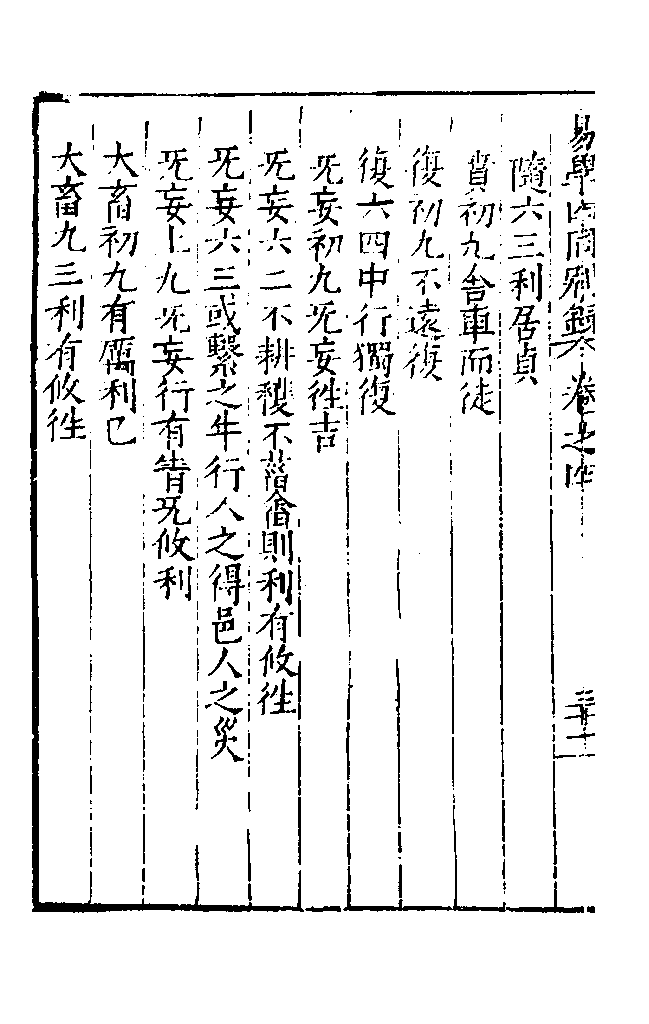 易學 卷之四
隨六三利居貞
賁初九舍車而徒
復初九不遠復
復六四中行獨復
旡妄初九旡妄徃吉
旡妄六二不耕穫不菑畬則利有攸徃
旡妄六三或繫之牛行人之得邑人之災
旡妄上九旡妄行有眚旡攸利
大畜初九有厲利已
大畜九三利有攸徃